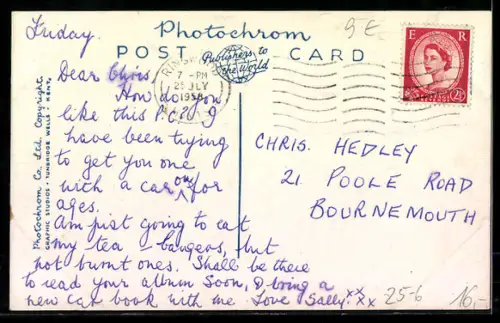 Photochrom
POST CARD
Publishers to
the World
9 E
E R
2½
RINGW
7 - PM
25 JLY
1958
Friday.
Dear Chris,
How do you
like this P.C.? I
have been trying
to get you one
with a car on for
ages.
Am just going to eat
my tea - bangers, but
not burnt ones. Shall be there
to read your album soon, & bring a
new car book with me Love Sally. xx
xx
CHRIS. HEDLEY
21. POOLE ROAD
BOURNEMOUTH
Photochrom Co. Ltd. Copyright.
GRAPHIC STUDIOS · TUNBRIDGE WELLS · KENT.
25-6
16,-